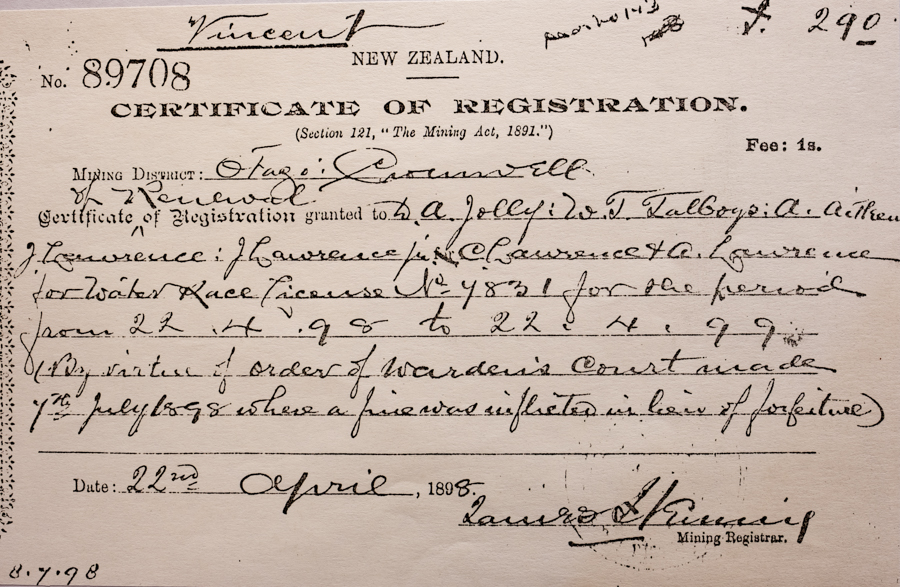 Vincent
f. 290
NEW ZEALAND.
No. 89708
CERTIFICATE OF REGISTRATION.
(Section 121, "The Mining Act, 1891.")
Fee: 1s.
MINING DISTRICT: Otago: Cromwell
of Renewal
Certificate ^ of Registration granted to D. A. Jolly: W. T. Talboys: A. Aitken
J Lawrence: J Lawrence jr C Lawrence & A. Lawrence
for Water Race License No 7831 for the period
from 22. 4. 98 to 22. 4. 99
(By virtue of order of Warden's Court made
7th July 1898 where a fine was inflicted in lieu of forfeiture)
Date: 22nd April, 1898.
Mining Registrar.
8.7.98